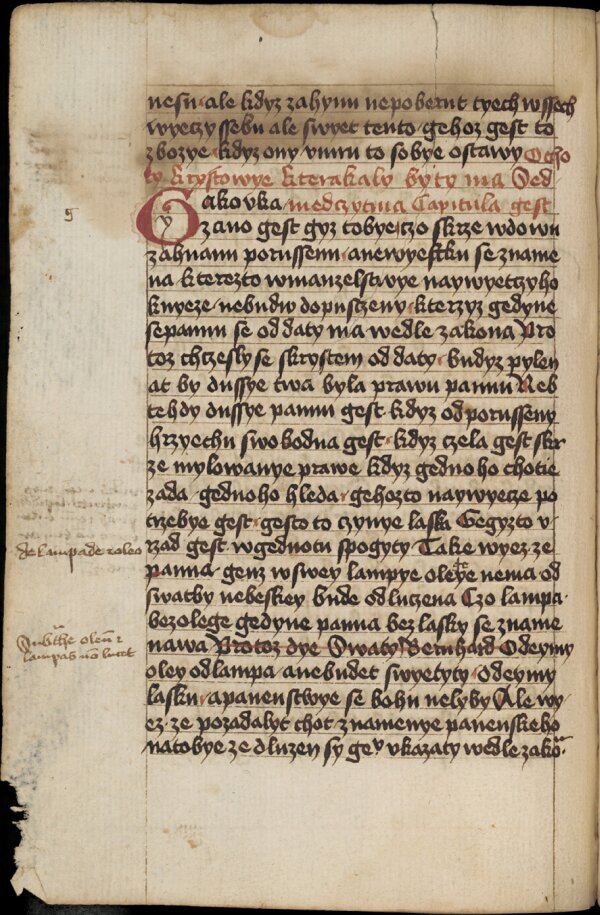 nesu· ale kdyz zahynu nepoberut tyech wssech
wyeczy ssebu ale swyet tento· gehoz gest to
zbozye· kdyz ony umru to sobye ostawy O cho
ty krystowye kteraka ly by ty ma Sed
Gakovka· medczytma Capitula gest
zano gest gyz tobye czo skrze wdowu
zahnanu porussenu· anewyestku se zname
na kterezto wmanzelstwye naywyetczyho
knyeze· nebudu dopusczeny· kterzyz gedyne
sepannu se oddaty ma wedle zakona Pro
toz chczesly se skrystem oddaty· budyz pylen
at by dussye twa byla prawu pannu Neb
tehdy dussye pannu gest· kdyz od porusseny
hrzyechu swobodna gest· kdyz czela gest skr
ze mylowanye prawe kdyz gednoho chotie
zada· gednoho hleda· gehozto naywyecze po
trzebye gest· gesto to czynye laska Gegyzto v
rzad gest wgednotu spogyty Take wyez ze
panna· genz wswey lampye oleye nema od
swatby nebeskey bude odluczena Czo lampa·
bez olege gedyne panna bez lasky se zname
nawa Protoz dye Swaty Bernhard Odeymy
oley od lampa· a nebudet swyetyty· odeymy
lasku· a panenstwye se bohu nelyby Ale wy
ez· ze pozadalyt chot znamenye panenskeho
na tobye ze dluzen sy gey ukazaty wedle zako·
9
de lampade
oleum
lampas non lucet